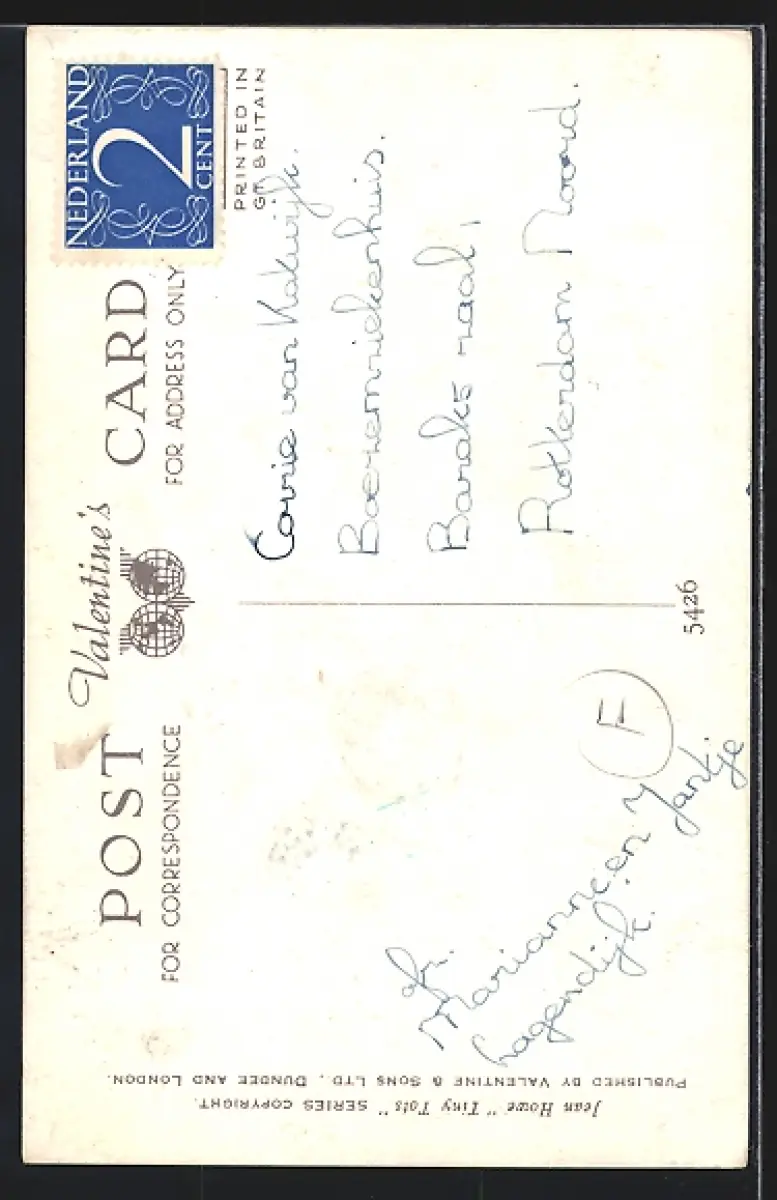 POST Valentine's CARD
FOR CORRESPONDENCE
FOR ADDRESS ONLY
NEDERLAND
2
CENT
PRINTED IN
GT BRITAIN
Corrie van Katwijk.
Boezemziekenhuis.
Barak 5 zaal,
Rotterdam Noord.
5426
F
afz.
Marianne en Jantje
hagendijk.
Jean Howe "Tiny Tots" SERIES COPYRIGHT.
PUBLISHED BY VALENTINE & SONS LTD., DUNDEE AND LONDON.